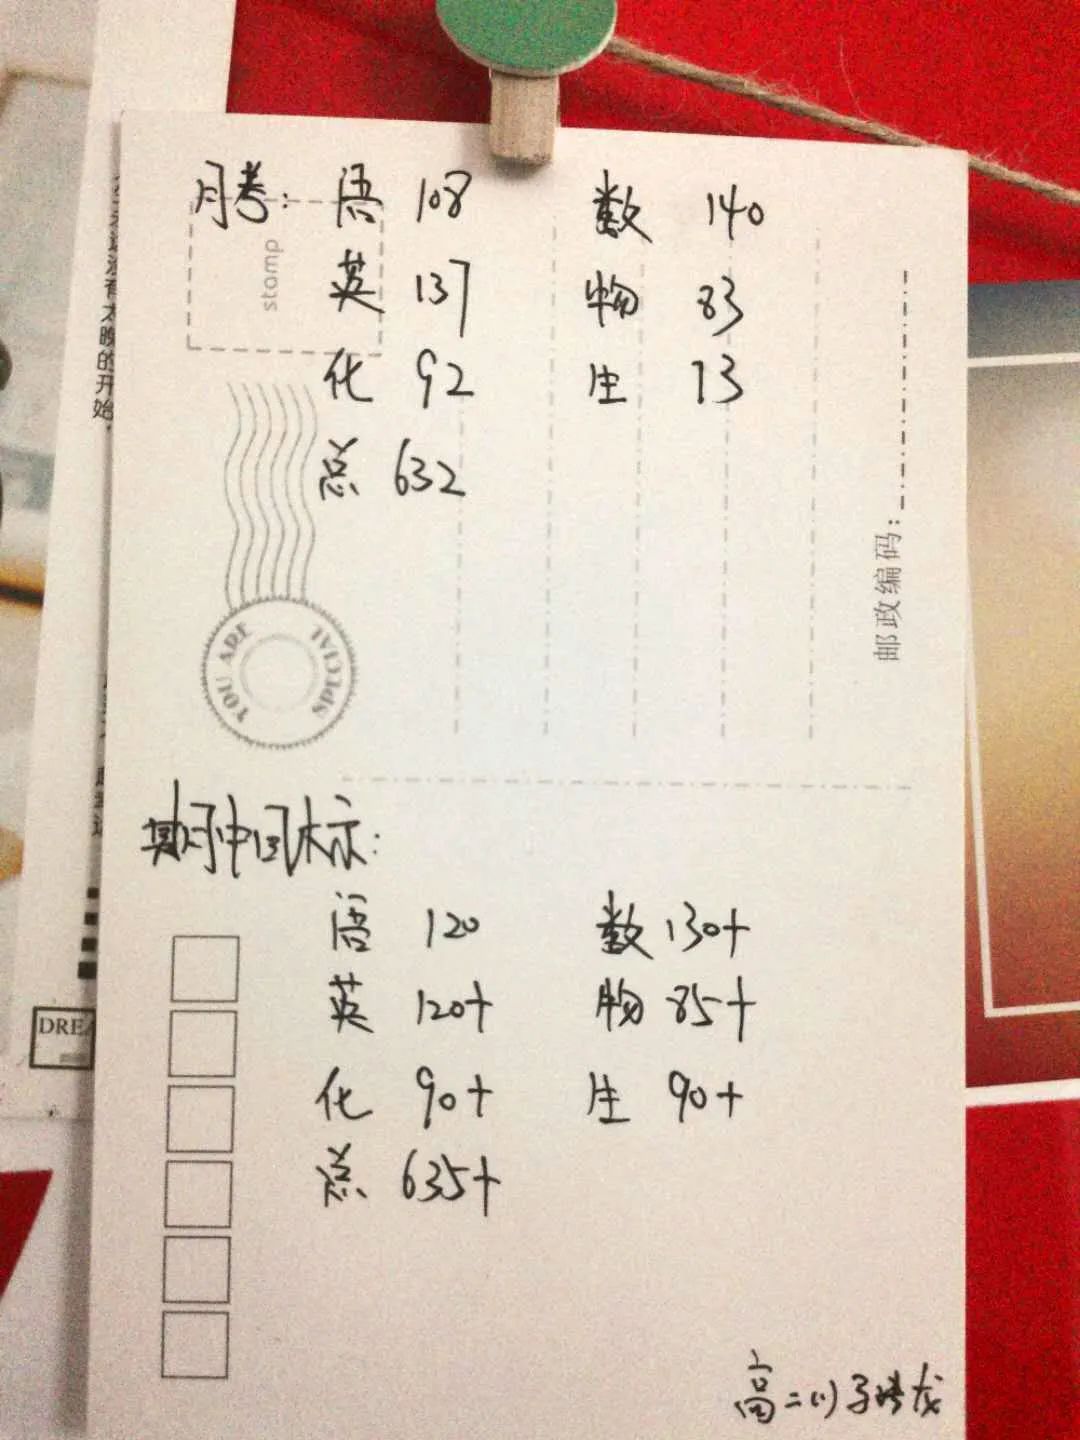 月考: 语 108 数 140
stamp
英 137 物 83
化 92 生 73
总 632
邮政编码:
YOU ARE SPECIAL
期中目标:
语 120 数 130+
英 120+ 物 85+
化 90+ 生 90+
总 635+
高二(1)
太晚的开始
DREA